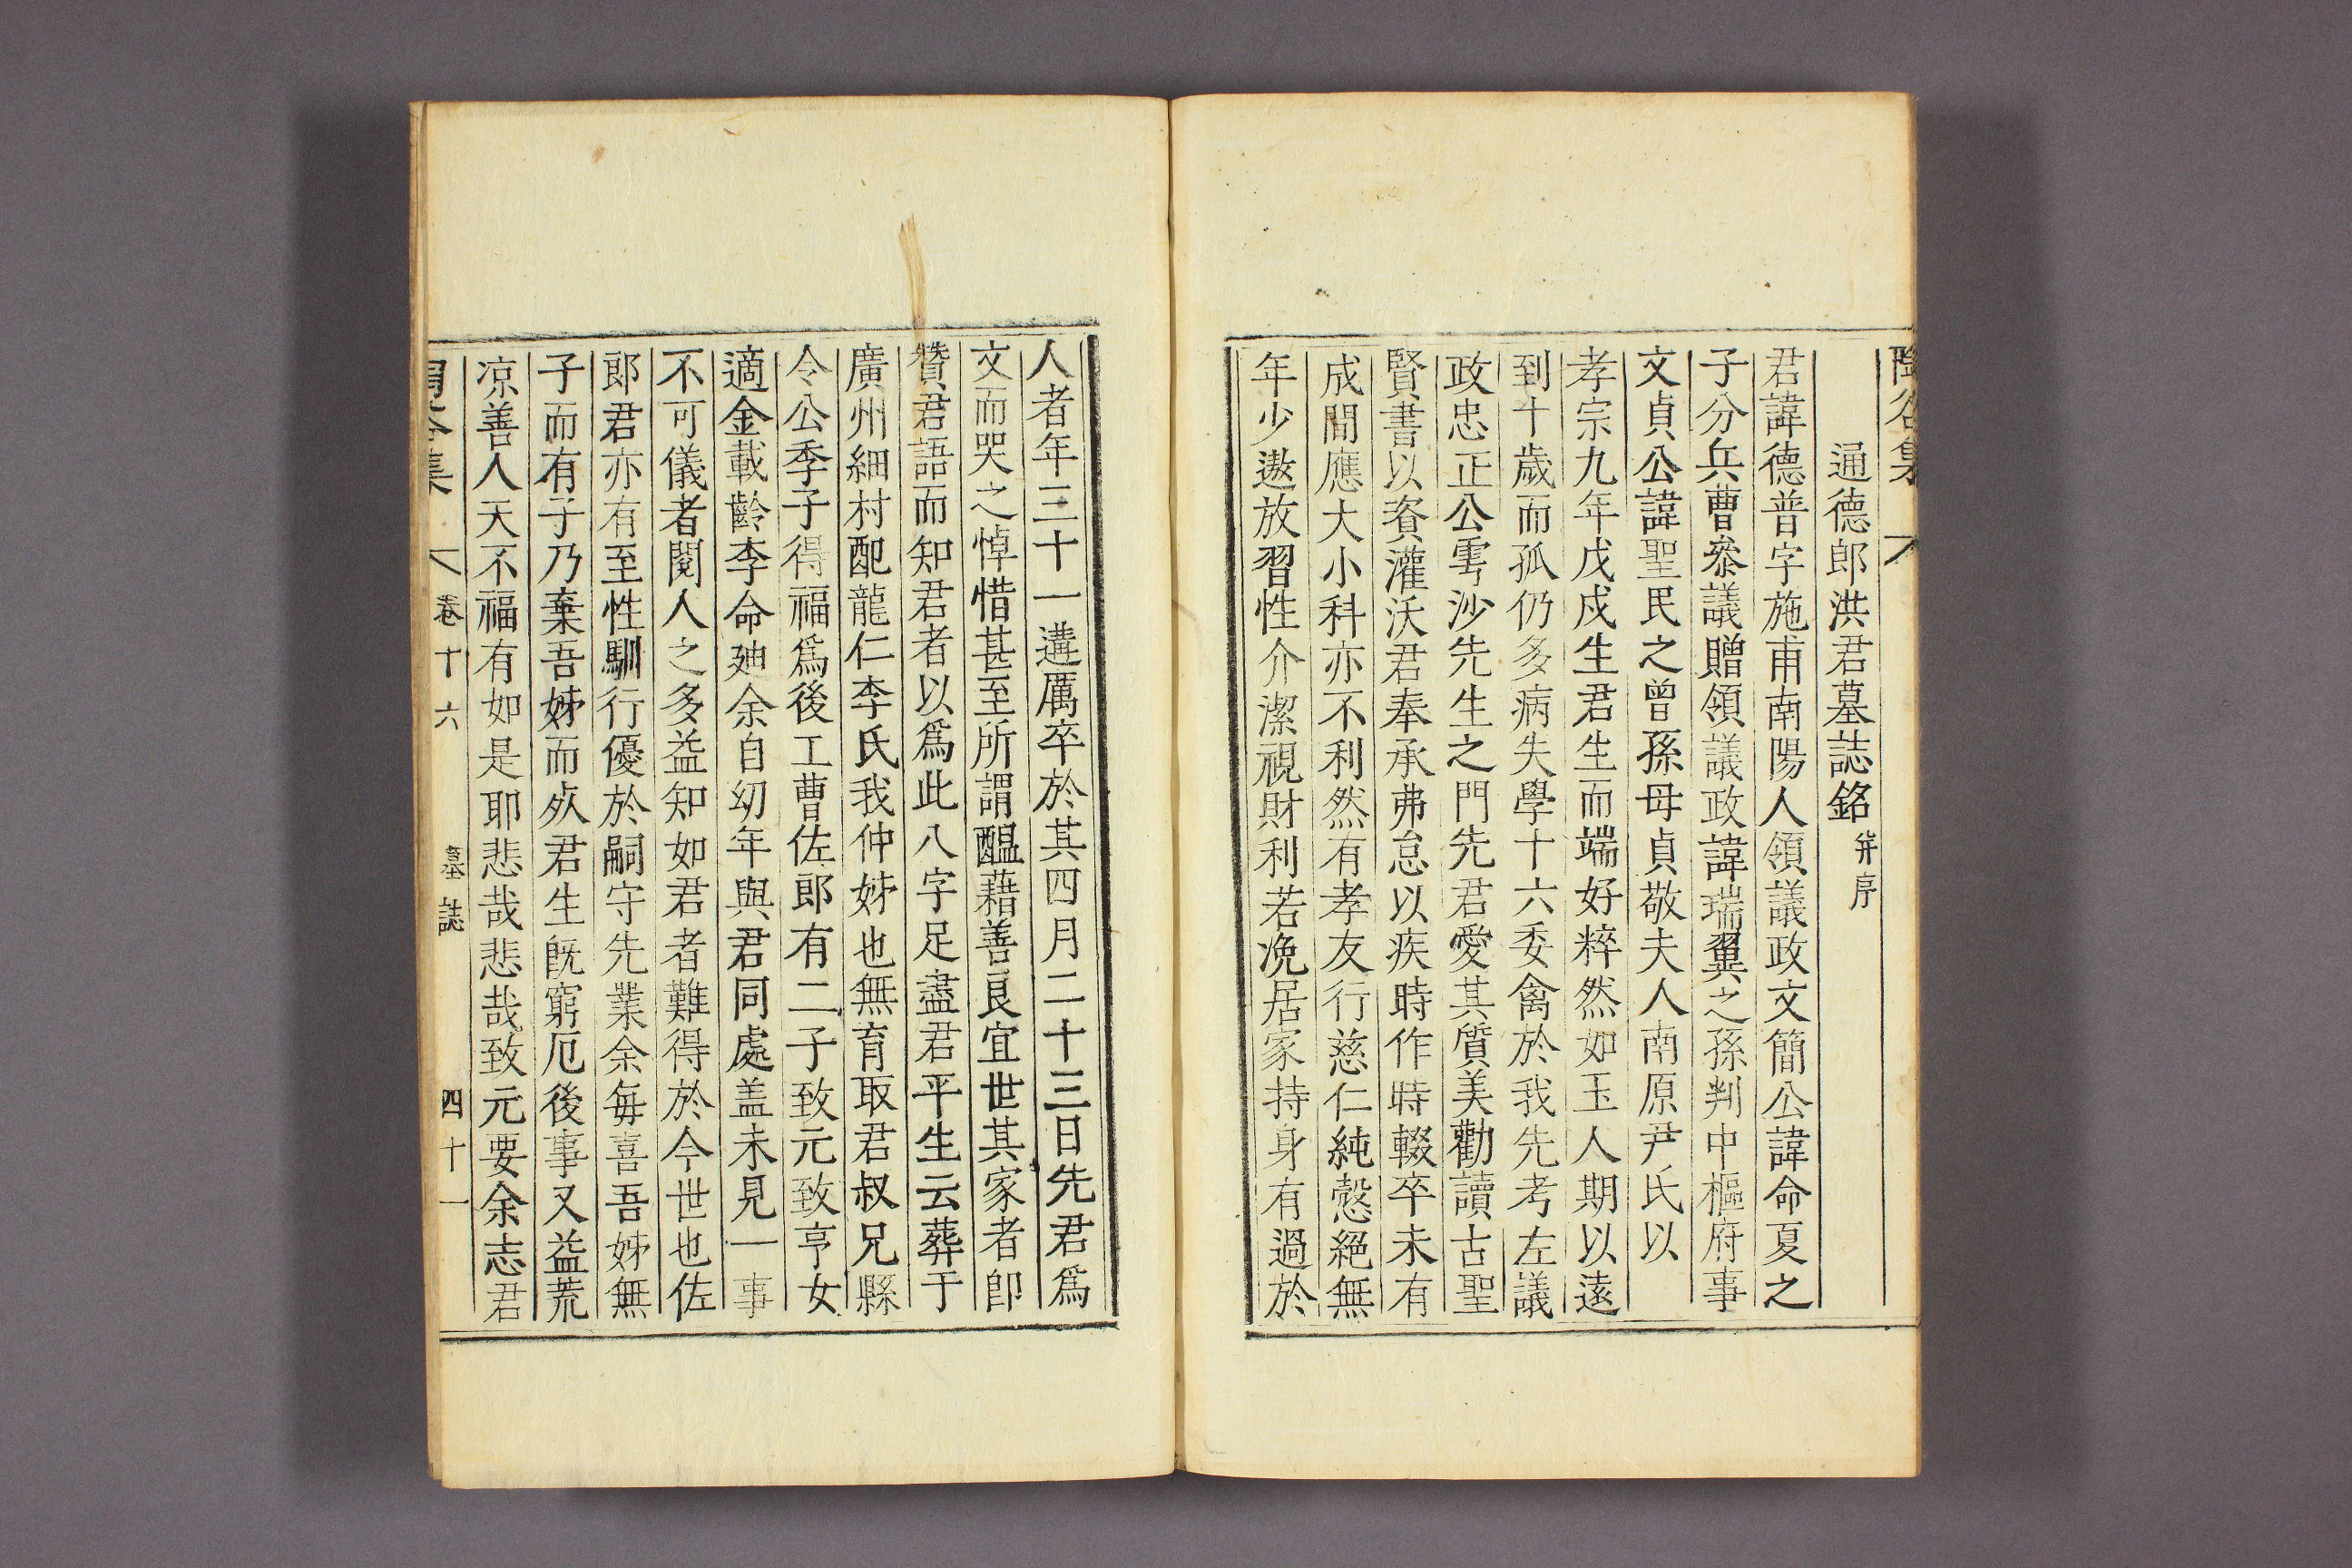 陶谷集
通德郎洪君墓誌銘 幷序
君諱德普字施甫南陽人領議政文簡公諱命夏之
子分兵曹參議贈領議政諱瑞翼之孫判中樞府事
文貞公諱聖民之曾孫母貞敬夫人南原尹氏以
孝宗九年戊戌生君生而端好粹然如玉人期以遠
到十歲而孤仍多病失學十六委禽於我先考左議
政忠正公雩沙先生之門先君愛其質美勸讀古聖
賢書以資灌沃君奉承弗怠以疾時作時輟卒未有
成間應大小科亦不利然有孝友行慈仁純慤絕無
年少遨放習性介潔視財利若浼居家持身有過於
人者年三十一遘厲卒於其四月二十三日先君爲
文而哭之悼惜甚至所謂醞藉善良宜世其家者卽
贊君語而知君者以爲此八字足盡君平生云葬于
廣州細村配龍仁李氏我仲姊也無育取君叔兄縣
令公季子得福爲後工曹佐郎有二子致元致亨女
適金載齡李命廸余自幼年與君同處盖未見一事
不可儀者閱人之多益知如君者難得於今世也佐
郎君亦有至性馴行優於嗣守先業余每喜吾姊無
子而有子乃棄吾姊而歿君生旣窮厄後事又益荒
凉善人天不福有如是耶悲哉悲哉致元要余志君
陶谷集 卷十六 墓誌 四十一